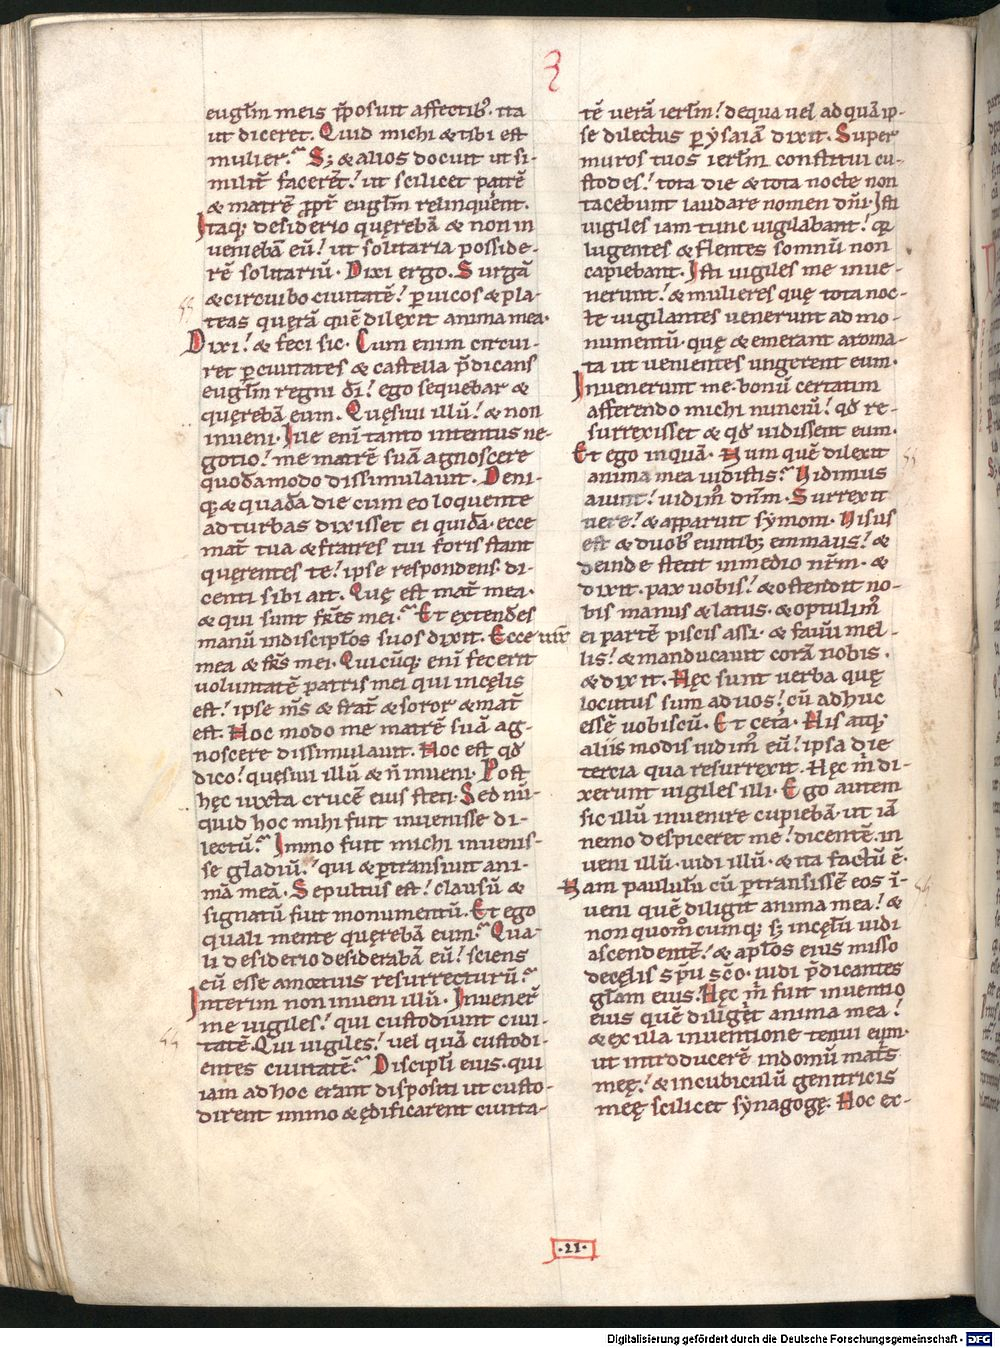 3
eug̅lm meis p̅posuit affectib᷒. ita
ut diceret. Quid michi & tibi est
mulier? S; & alios docuit ut si-
milit̅ facerēt! ut scilicet patrē
& matrē ꝓpt̅ eug̅lm relinquerent.
Itaq; desiderio querebā & non in
veniebā eū! ut solitaria posside-
rē solitariū. Dixi ergo. Surgā
& circuibo civitatē! ꝑ uicos & pla-
teas querā quē dilexit anima mea.
Dixi! & feci sic. Cum enim circui-
ret ꝑ civitates & castella p̅dicans
eug̅lm regni dī! ego sequebar &
quęrebā eum. Quęsiui illū! & non
inveni. Ille enī tanto intentus ne-
gotio! me matrē suā agnoscere
quodāmodo dissimulauit. Deni-
q; & quadā die cum eo loquente
ad turbas dixisset ei quidā. ecce
mat̅ tua & fratres tui foris stant
querentes te! ipse respondens di-
centi sibi ait. Quę est mat̅ mea.
& qui sunt fr̅es mei? Et extendēs
manū in discip̅los suos dixit. Ecce mat̅
mea & fr̅s mei. Quicūq; enī fecerit
voluntatē patris mei qui in cęlis
est! ipse m̅s & frat̅ & soror & mat̅
est. Hoc modo me matrē suā ag-
noscere dissimulauit. Hoc est qd̅
dico! quęsiui illū & n̅ inveni. Post
hęc iuxta crucē eius steti. Sed nū-
quid hoc mihi fuit invenisse di-
lectū? Immo fuit michi invenis-
se gladiū! qui & ꝑtransiuit ani-
mā meā. Sepultus est! clausū &
signatū fuit monumentū. Et ego
quali mente quęrebā eum? Qua-
li desiderio desiderabā eū! sciens
eū esse a mortuis resurrecturū?
Interim non inveni illū. Invener̅
me vigiles! qui custodiunt civi-
tatē. Qui vigiles! vel quā custodi-
entes civitatē? Discip̅li eius. qui
iam ad hoc erant dispositi ut custo-
dirent immo & ędificarent civita-
tē verā ierl̅m! de qua vel ad quā ip-
se dilectus ꝑ ysaiā dixit. Super
muros tuos ierl̅m constitui cu-
stodes! tota die & tota nocte non
tacebunt laudare nomen dn̅i. Isti
vigiles iam tunc vigilabant! qr̅
lugentes & flentes somnū non
capiebant. Isti vigiles me inve-
nerunt! & mulieres quę tota noc-
te vigilantes venerunt ad mo-
numentū. quę & emerant aroma-
ta ut venientes ungerent eum.
Invenerunt me. bonū certatim
afferendo michi nunciū! qd̅ re-
surrexisset & qd̅ vidissent eum.
Et ego inquā. Num quē dilexit
anima mea vidistis? Vidimus
aiunt! vidim᷒ dn̅m. Surrexit
vere! & apparuit symoni. Visus
est & duob᷒ euntib; emmaus! &
deinde stetit in medio nr̅m. &
dixit. pax vobis! & ostendit no-
bis manus & latus. & optulim᷒
ei partē piscis assi. & favū mel-
lis! & manducavit corā nobis.
& dixit. Hęc sunt verba quę
locutus sum ad vos! cū adhuc
essē vobiscū. Et cet̅a. His atq;
aliis modis vidim᷒ eū! ipsa die
tercia qua resurrexit. Hęc m̅ di-
xerunt vigiles illi. Ego autem
sic illū invenire cupiebā. ut iā
nemo despiceret me! dicentē. in
veni illū. vidi illū. & ita factū ē.
Nam paululū cū ꝑtransissē eos ī-
veni quē diligit anima mea! &
non quom̅cumq; s; in cęlū vidi
ascendentē! & ap̅los eius misso
de cęlis sp̅u sc̅o. vidi p̅dicantes
gl̅am eius. Hęc m̅ fuit inventio
eius quē diliget̅ anima mea!
& ex illa inventione tenui eum.
ut introducerē in domū mat̅s
meę! & in cubiculū genitricis
meę scilicet synagogę. Hoc ex-
.21.
Digitalisierung gefördert durch die Deutsche Forschungsgemeinschaft - DFG